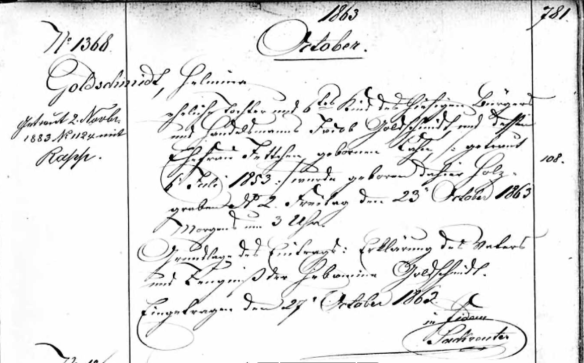 1863
781
October.
No 1368.
Goldschmidt, Helmina
eheliche Tochter und 6tes Kind des hiesigen Bürgers
und Handelmanns Jacob Goldschmidt, und dessen
Ehefrau Jettchen, gebornen Cahn, : getraut
Juli 1853 :/ wurde geboren dahier Holz-
graben No 2. Freitag den 23 October 1863
Morgens um 3 Uhr.
Grundlage des Eintrags: Erklärung des Vaters
und Zeugniß der Hebamme Goldschmidt.
Eingetragen den 27 October 1863.
in fidem
Getraut 2. Novbr.
1883 No 1124 mit
Kapp.
108.